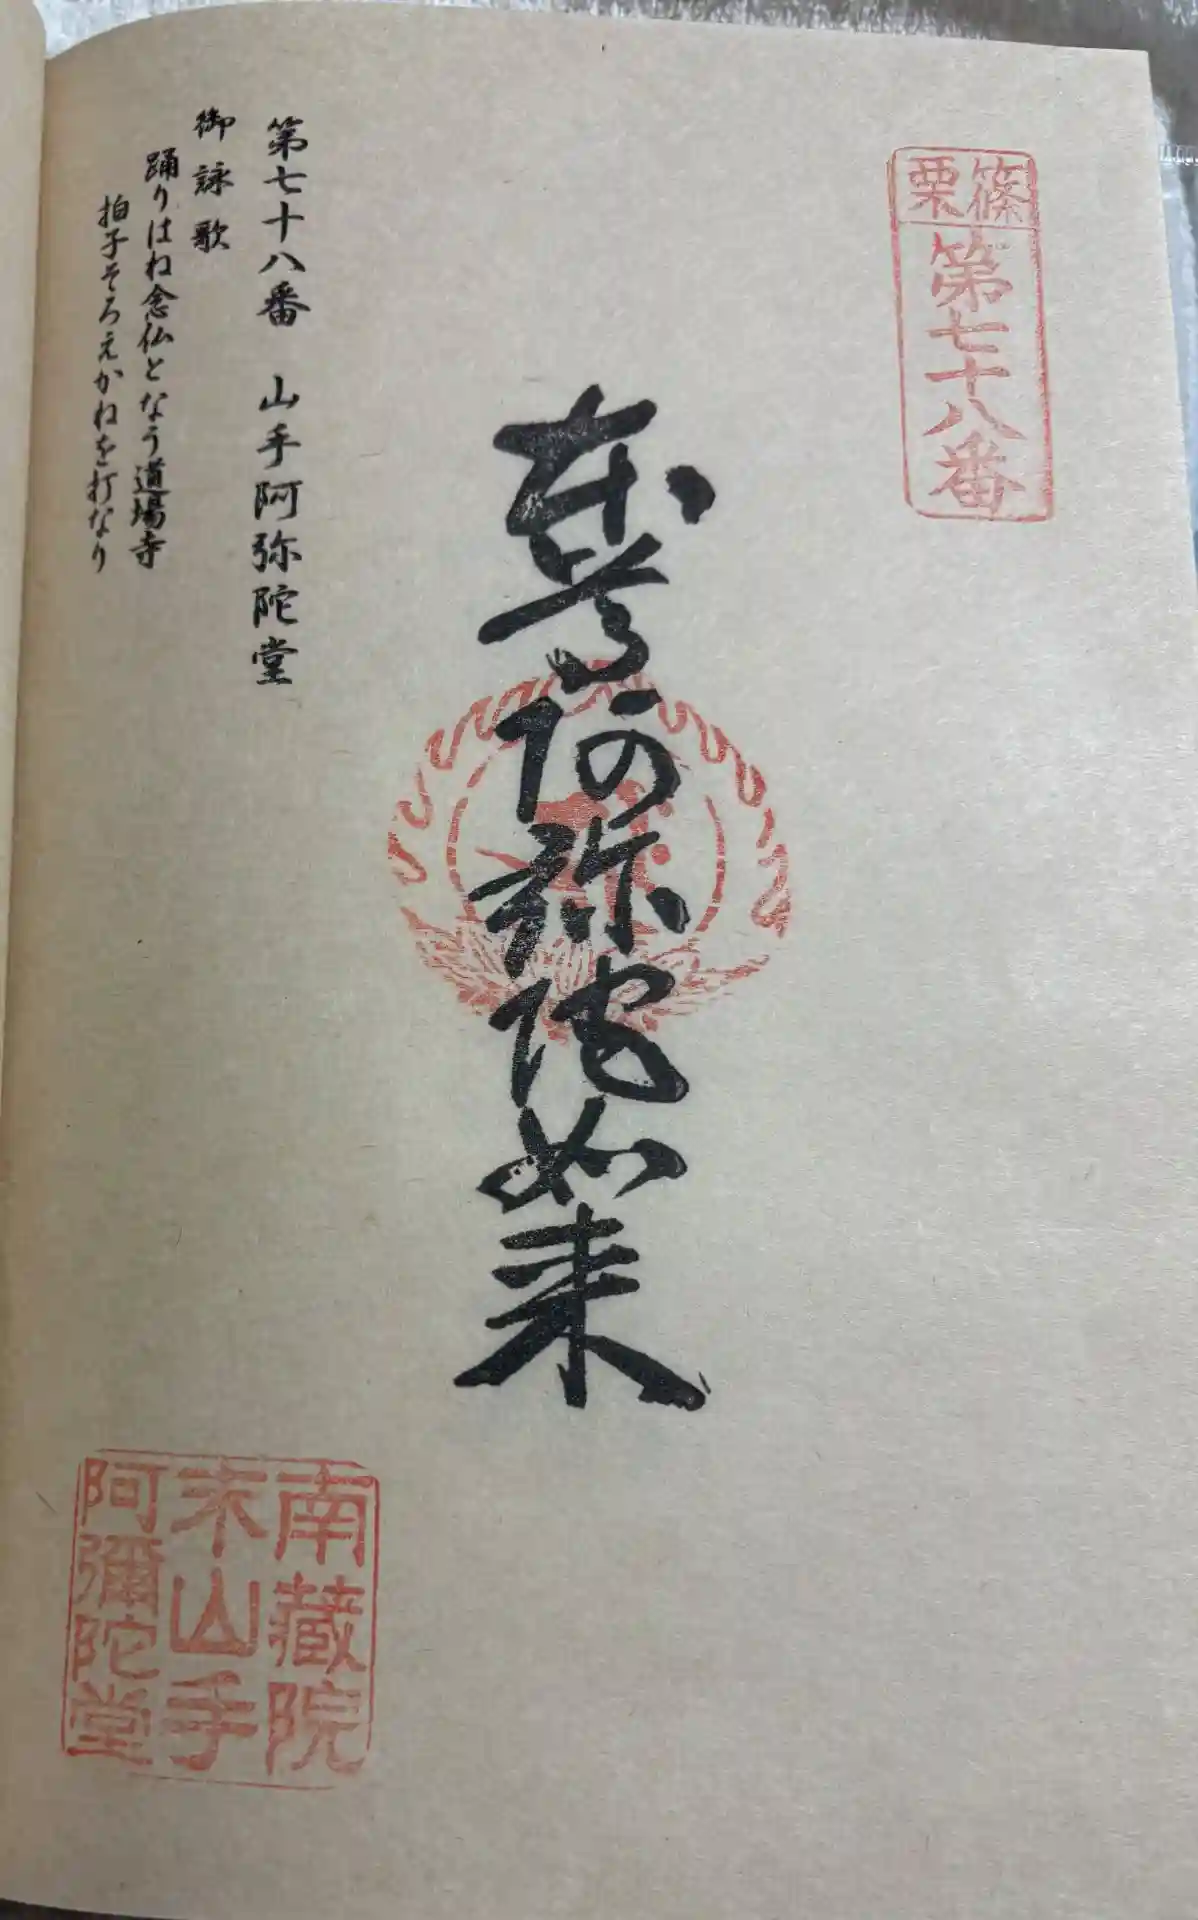 篠栗
第七十八番
本尊阿弥陀如来
第七十八番　山手阿弥陀堂
御詠歌
踊りはね念仏となう道場寺
拍子そろえかねを打なり
南蔵院
末山手
阿彌陀堂